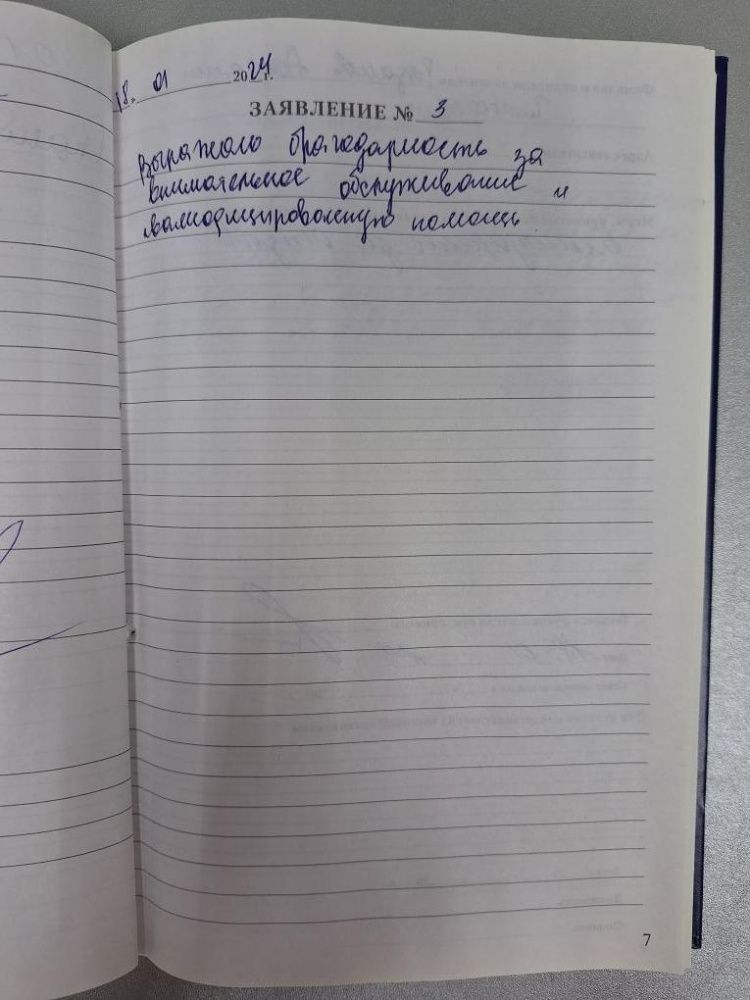 18. 01 2024 г.
ЗАЯВЛЕНИЕ № 3
Выражаю благодарность за
внимательное обслуживание и
квалифицированную помощь
7